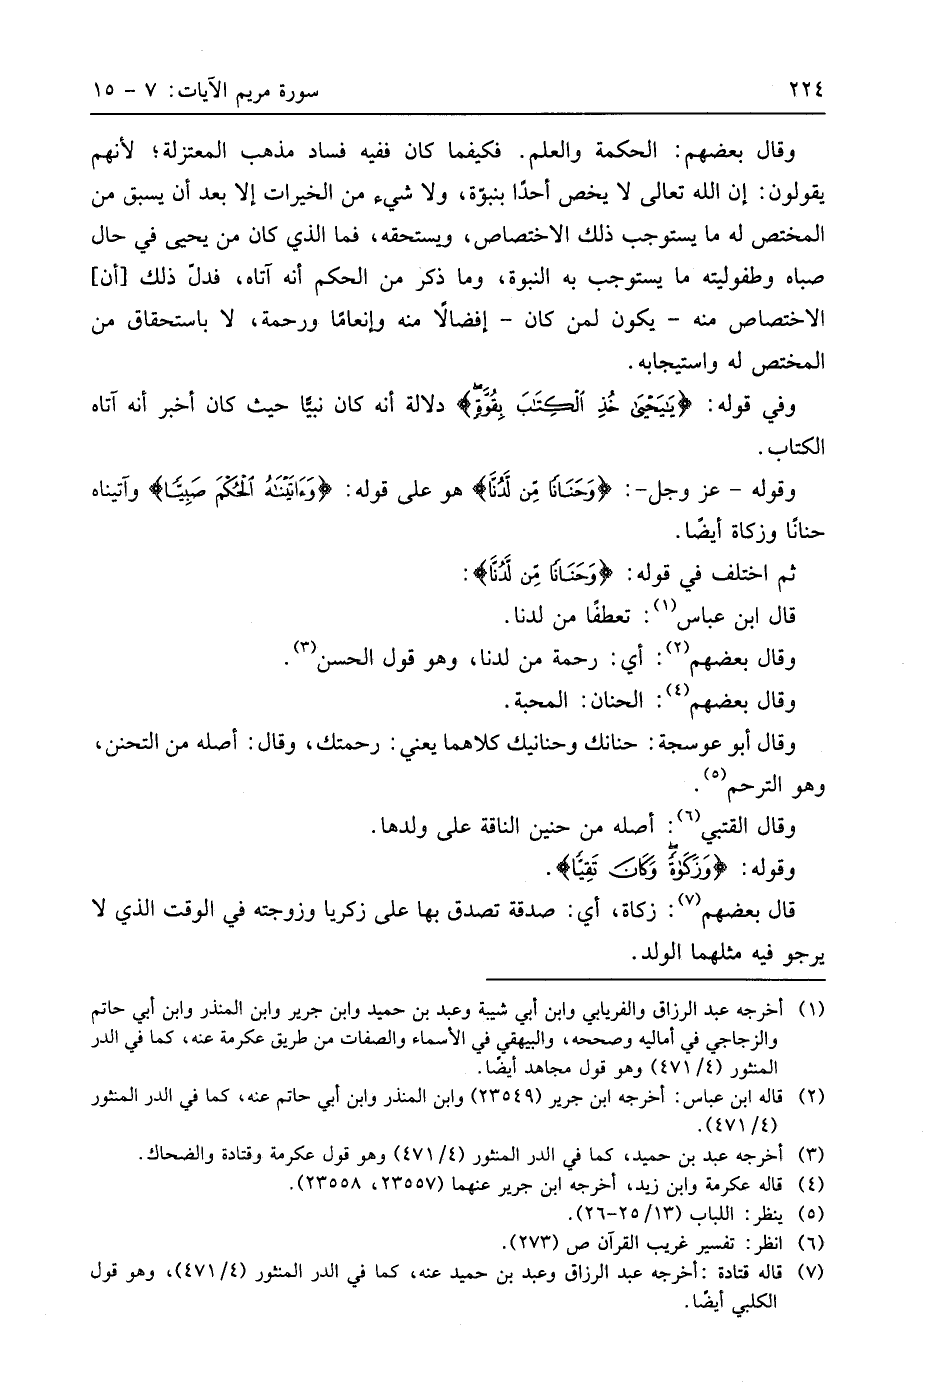 ٢٢٤ سورة مريم الآيات: ٧ - ١٥
وقال بعضهم: الحكمة والعلم. فكيفما كان ففيه فساد مذهب المعتزلة؛ لأنهم
يقولون: إن الله تعالى لا يخص أحدًا بنبوّة، ولا شيء من الخيرات إلا بعد أن يسبق من
المختص له ما يستوجب ذلك الاختصاص، ويستحقه، فما الذي كان من يحيى في حال
صباه وطفوليته ما يستوجب به النبوة، وما ذكر من الحكم أنه آتاه، فدلّ ذلك [أن]
الاختصاص منه - يكون لمن كان - إفضالًا منه وإنعامًا ورحمة، لا باستحقاق من
المختص له واستيجابه.
وفي قوله: ﴿يَٰيَحْيَىٰ خُذِ ٱلْكِتَٰبَ بِقُوَّةٍۖ﴾ دلالة أنه كان نبيًّا حيث كان أخبر أنه آتاه
الكتاب.
وقوله - عز وجل-: ﴿وَحَنَانًا مِّن لَّدُنَّا﴾ هو على قوله: ﴿وَءَاتَيْنَٰهُ ٱلْحُكْمَ صَبِيًّا﴾ وآتيناه
حنانًا وزكاة أيضًا.
ثم اختلف في قوله: ﴿وَحَنَانًا مِّن لَّدُنَّا﴾:
قال ابن عباس(١): تعطفًا من لدنا.
وقال بعضهم(٢): أي: رحمة من لدنا، وهو قول الحسن(٣).
وقال بعضهم(٤): الحنان: المحبة.
وقال أبو عوسجة: حنانك وحنانيك كلاهما يعني: رحمتك، وقال: أصله من التحنن،
وهو الترحم(٥).
وقال القتبي(٦): أصله من حنين الناقة على ولدها.
وقوله: ﴿وَزَكَوٰةًۖ وَكَانَ تَقِيًّا﴾.
قال بعضهم(٧): زكاة، أي: صدقة تصدق بها على زكريا وزوجته في الوقت الذي لا
يرجو فيه مثلهما الولد.
(١) أخرجه عبد الرزاق والفريابي وابن أبي شيبة وعبد بن حميد وابن جرير وابن المنذر وابن أبي حاتم
والزجاجي في أماليه وصححه، والبيهقي في الأسماء والصفات من طريق عكرمة عنه، كما في الدر
المنثور (٤/ ٤٧١) وهو قول مجاهد أيضًا.
(٢) قاله ابن عباس: أخرجه ابن جرير (٢٣٥٤٩) وابن المنذر وابن أبي حاتم عنه، كما في الدر المنثور
(٤/ ٤٧١).
(٣) أخرجه عبد بن حميد، كما في الدر المنثور (٤/ ٤٧١) وهو قول عكرمة وقتادة والضحاك.
(٤) قاله عكرمة وابن زيد، أخرجه ابن جرير عنهما (٢٣٥٥٧، ٢٣٥٥٨).
(٥) ينظر: اللباب (١٣/ ٢٥-٢٦).
(٦) انظر: تفسير غريب القرآن ص (٢٧٣).
(٧) قاله قتادة :أخرجه عبد الرزاق وعبد بن حميد عنه، كما في الدر المنثور (٤/ ٤٧١)، وهو قول
الكلبي أيضًا.